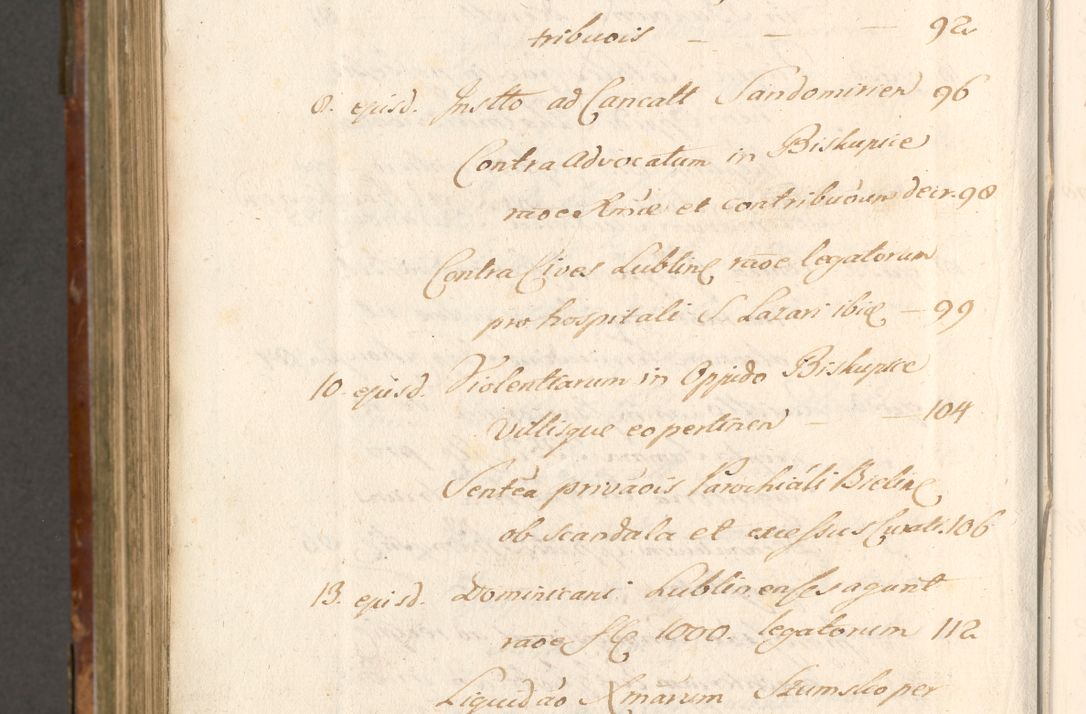 tribuōis - - - 92
8. ejusd. Instto ad Cancall Sandomirien 96
Contra Advocatum in Biskupice
rāoe Xmæ et contribuōum decr. 98
Contra Cives Lublin rāoe legatorum
pro hospitali S. Lazari ibid — 99
10. ejusd. Violentiarum in Oppido Biskupice
Villisque eo pertinen - — 104
Sentēa privāois Parochiali Bielin
ob scandala et excessus 106
13. ejusd. Dominicani Lublinenses agunt
rāoe 1000. legatorum 112
Liquidāo Xmarum Szumsko per